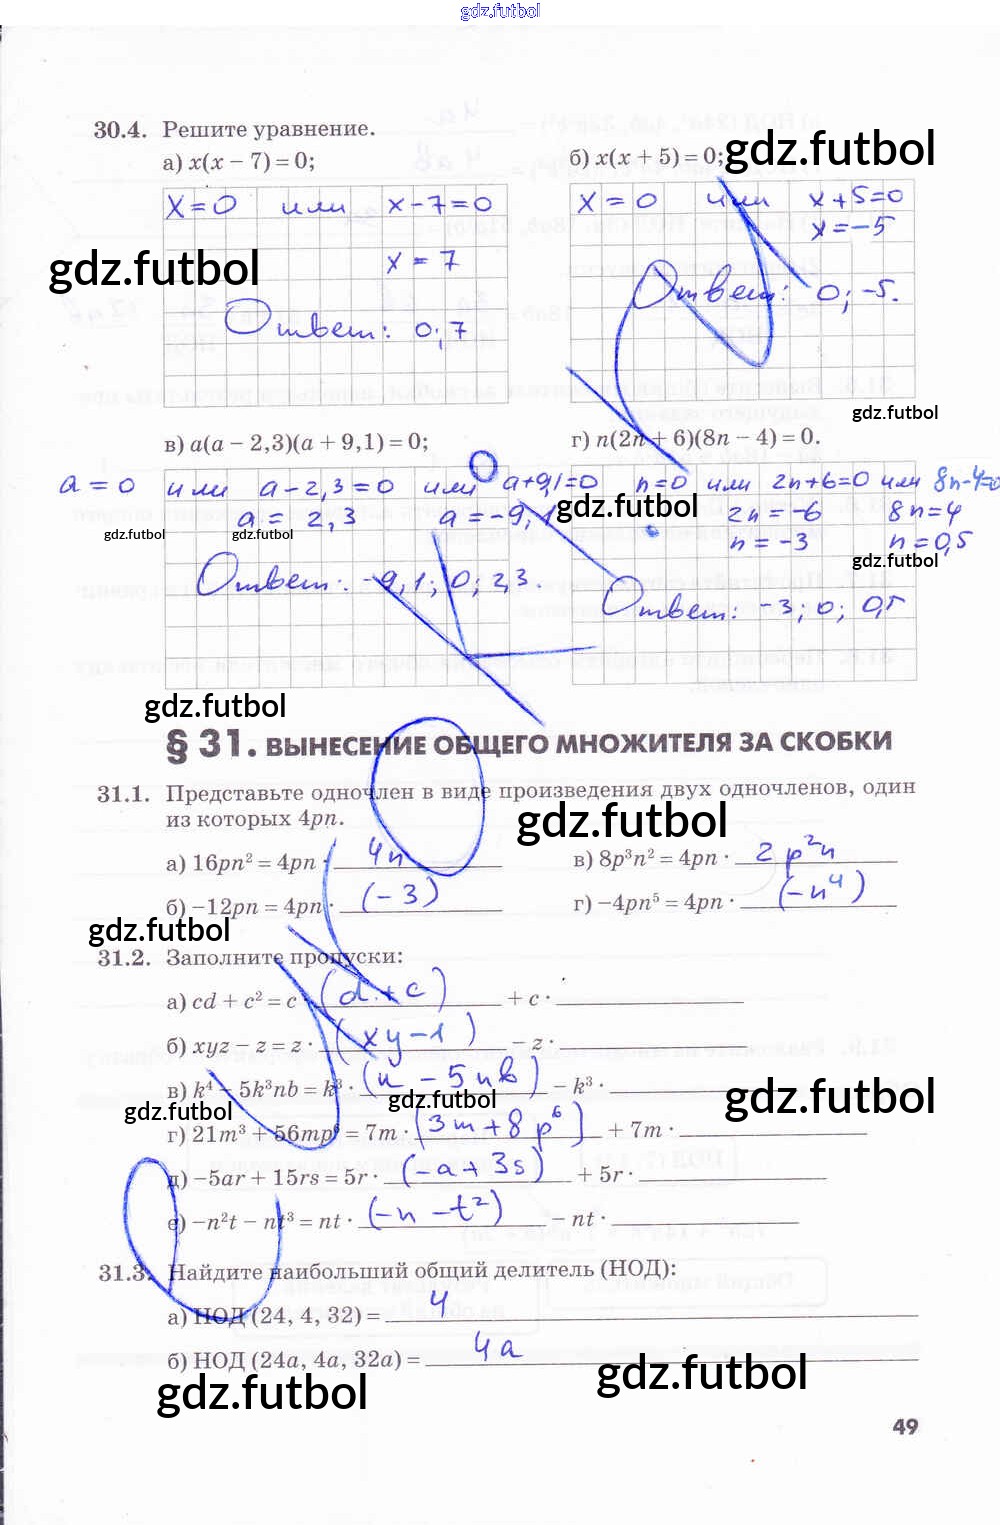 gdz.futbol
30.4. Решите уравнение.
а) x(x − 7) = 0;
б) x(x + 5) = 0;
gdz.futbol
x = 0 или x − 7 = 0
x = 7
gdz.futbol
Ответ: 0; 7
x = 0 или x + 5 = 0
x = −5
Ответ: 0; −5.
gdz.futbol
в) a(a − 2,3)(a + 9,1) = 0;
г) n(2n + 6)(8n − 4) = 0.
a = 0 или a − 2,3 = 0 или a + 9,1 = 0
a = 2,3 a = −9,1
gdz.futbol gdz.futbol
Ответ: −9,1; 0; 2,3.
n = 0 или 2n + 6 = 0 или 8n − 4 = 0
gdz.futbol
2n = −6 8n = 4
n = −3 n = 0,5
gdz.futbol
Ответ: −3; 0; 0,5
gdz.futbol
§ 31. ВЫНЕСЕНИЕ ОБЩЕГО МНОЖИТЕЛЯ ЗА СКОБКИ
31.1. Представьте одночлен в виде произведения двух одночленов, один
из которых 4pn.
gdz.futbol
а) 16pn² = 4pn · 4n
в) 8p³n² = 4pn · 2p²n
б) −12pn = 4pn · (−3)
г) −4pn⁵ = 4pn · (−n⁴)
gdz.futbol
31.2. Заполните пропуски:
а) cd + c² = c · (d + c) + c ·
б) xyz − z = z · (xy − 1) − z ·
в) k⁴ − 5k³nb = k³ · (k − 5nb) − k³ ·
gdz.futbol gdz.futbol gdz.futbol
г) 21m³ + 56mp⁶ = 7m · (3m + 8p⁶) + 7m ·
д) −5ar + 15rs = 5r · (−a + 3s) + 5r ·
е) −n²t − nt³ = nt · (−n − t²) − nt ·
31.3. Найдите наибольший общий делитель (НОД):
а) НОД (24, 4, 32) = 4
б) НОД (24a, 4a, 32a) = 4a
gdz.futbol gdz.futbol
49